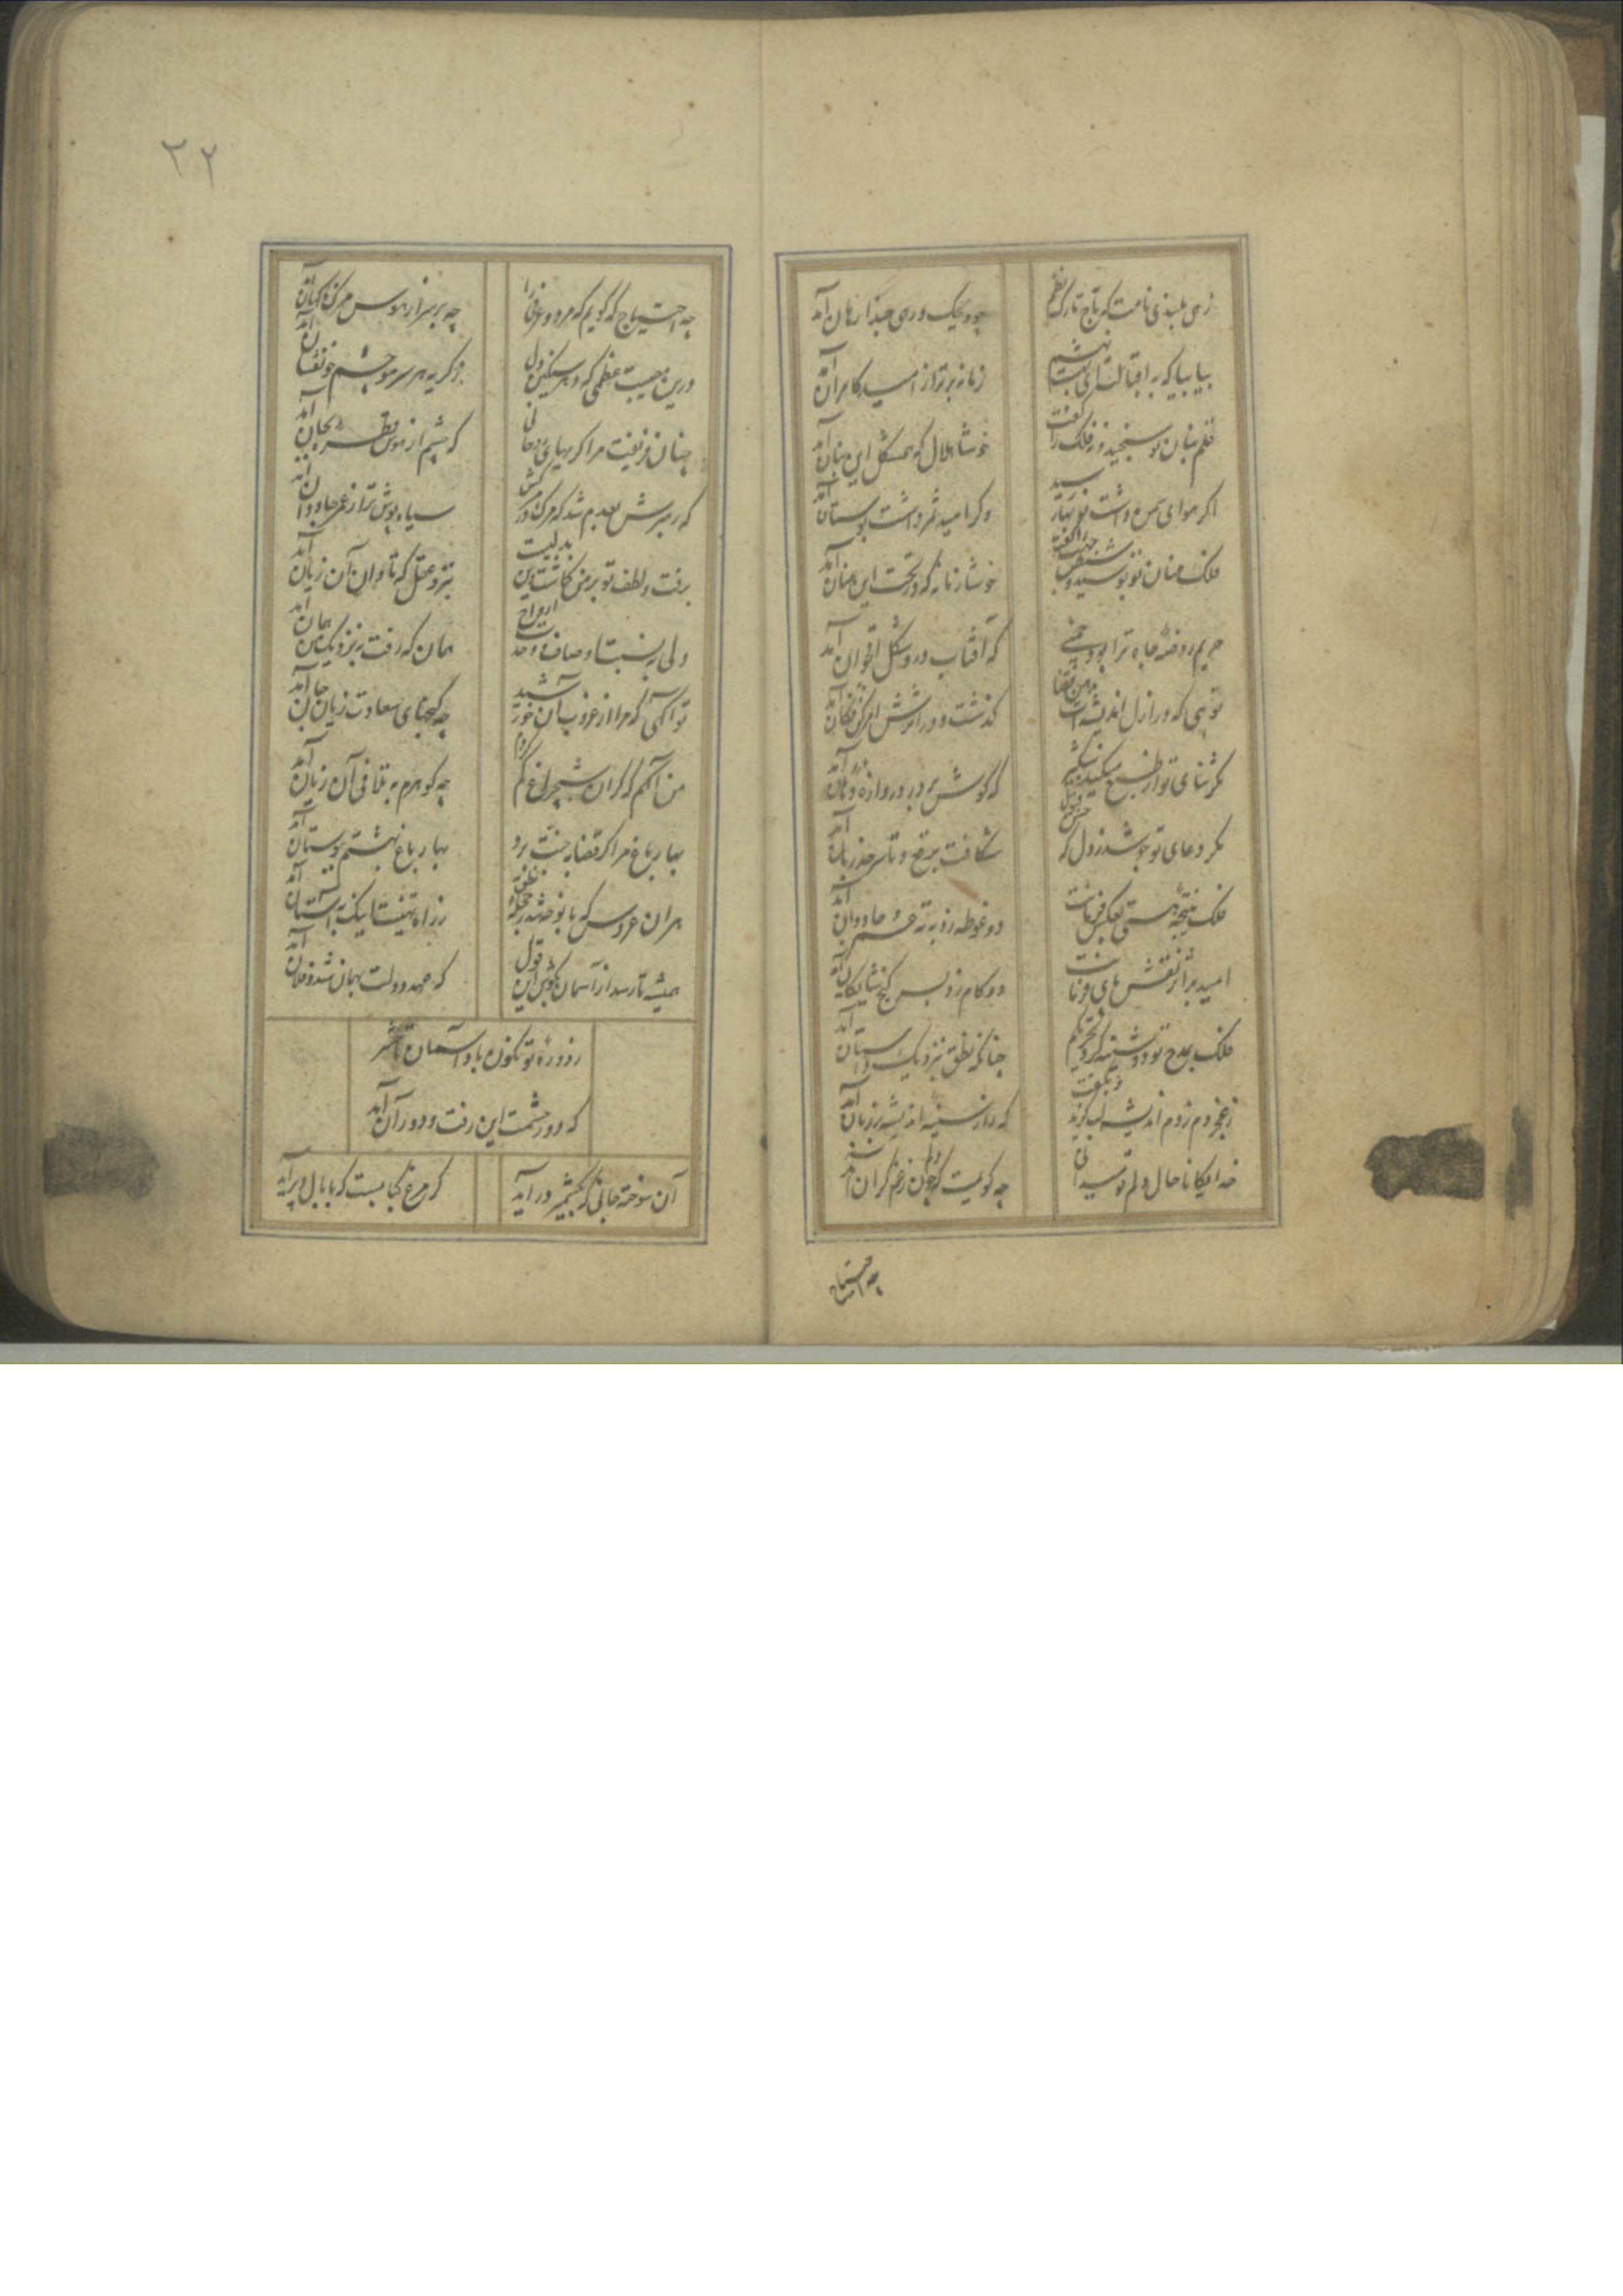 زهی بلندی نامت که تاج تارک نظم
چو دیک وری جدا زهان آمد
بیا بیا که به اقبالت ای بهشت
زمانه بر تو از امید کامران آمد
قلم بنان بوسنجید وز فلک را گفت
خوشا هلال که همشکل این بنان آمد
اگر هوای سمن داشت نوبهار رسید
وگر امید ثمر داشت بوستان آمد
ملک عنان تو بوسید و
خوشا زمانه که در تحت این عنان آمد
حریم روضهٔ جاه ترا بود
که آفتاب درو شکل اقحوان آمد
تویی که در ازل اندیشه
گذشت و در اثرش امر کن فکان آمد
مگر ثنای تو از طبع میکند شبگیر
که گوش بر در دروازه دهان آمد
مگر دعای تو جوشد ز دل که
شکافت برقع و تا سرحد زبان آمد
ملک نتیجه هستی بعکس فرمانت
دو غوطه زد به ته عمر جاودان آمد
امید بر اثر نقش های فرمانت
دو کام زد بسر گنج شایگان آمد
ملک بمدح تو دوشینه کرد تحریکم
چنانکه نطق بنزدیک داستان آمد
ز عجز دم نزدم اندیشه لب گزید و بگفت
که راز سینه اندیشه بر زبان آمد
خدایگانا حال دلم تو میدانی
چه گویمت که دلم چون ز غم گران آمد
چه احتیاج
۳۲
چه احتیاج که گویم که مرد و عرفی را
چه بر سر از هوس مرگ ناگهان آمد
درین مصیبت عظمی که هر سنگین دل
ز گریه هر سر مو چشم خونفشان آمد
چنان فریفت مرا گریهای روحانی
که چشم از هوس قطره بجان آمد
که رهبرش بعدم شد که مرگ در کش
سیاه پوش تر از عمر جاودان آمد
برفت و لطف تو بر من گماشت این بدلیت
بنزد عقل که تاوان آن زیان آمد
ولی به نسبت اوصاف وحدت ارواح
همان که رفت به نزدیک من همان آمد
تو آگهی که مرا از غروب آن خورشید
چه گنجهای سعادت زیان جان آمد
من آگهم که گر آن شبچراغ گم کردم
چه گوهرم به تلافی آن زیان آمد
بهار باغ مرا گر قضا به جنت برد
بهار باغ بهشتم ببوستان آمد
هر آن عروس که با نوحه شد بحجله نطق
ز راه تهنیتت اینک بآستان آمد
همیشه تا رسد از آسمان بگوش این قول
که عهد دولت بهمان شد و فلان آمد
ز دوره تو نگون باد آسمان تا حشر
که دور حشمت این رفت و دور آن آمد
آن سوخته جانی که بکشمیر در آید
گر مرغ کبابست که با بال و پر آید